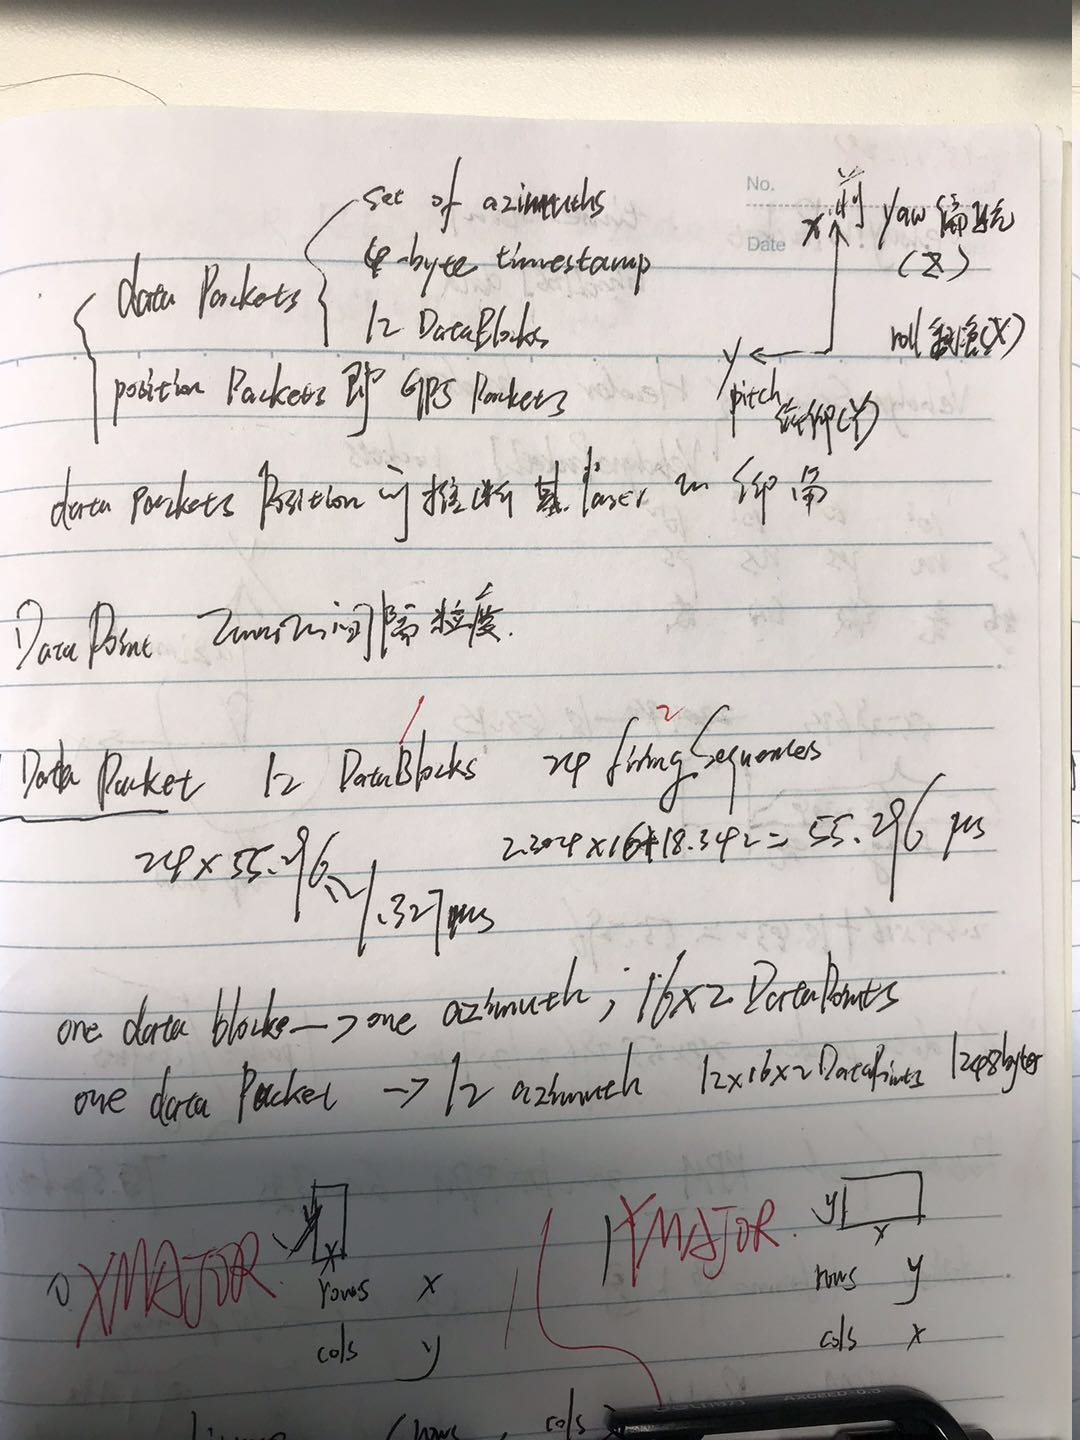 No.
Date
set of azimuths
4-byte timestamp
data Packets
12 DataBlocks
position Packets 即 GPS Packets
前
X
yaw 偏航
(Z)
roll 翻滚(X)
y
pitch
俯仰(Y)
data packets Position 可推断 laser 仰角
DataPoint 2mm 间隔粒度.
1
2
Data Packet 12 DataBlocks 24 firing Sequences
24 × 55.296
2.304×16+18.342 = 55.296 μs
.327μs
one data blocks → one azimuth ; 16×2 DataPoints
one data Packet → 12 azimuth 12×16×2 DataPoints 1248byte
0 XMAJOR
y
x
rows x
cols y
1 YMAJOR.
y
x
rows y
cols x
(rows , cols)